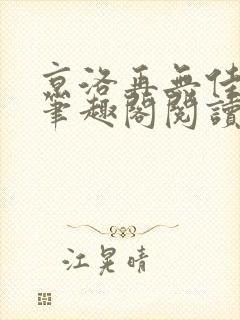 京洛再無佳
筆趣閣閱讀
江晃晴